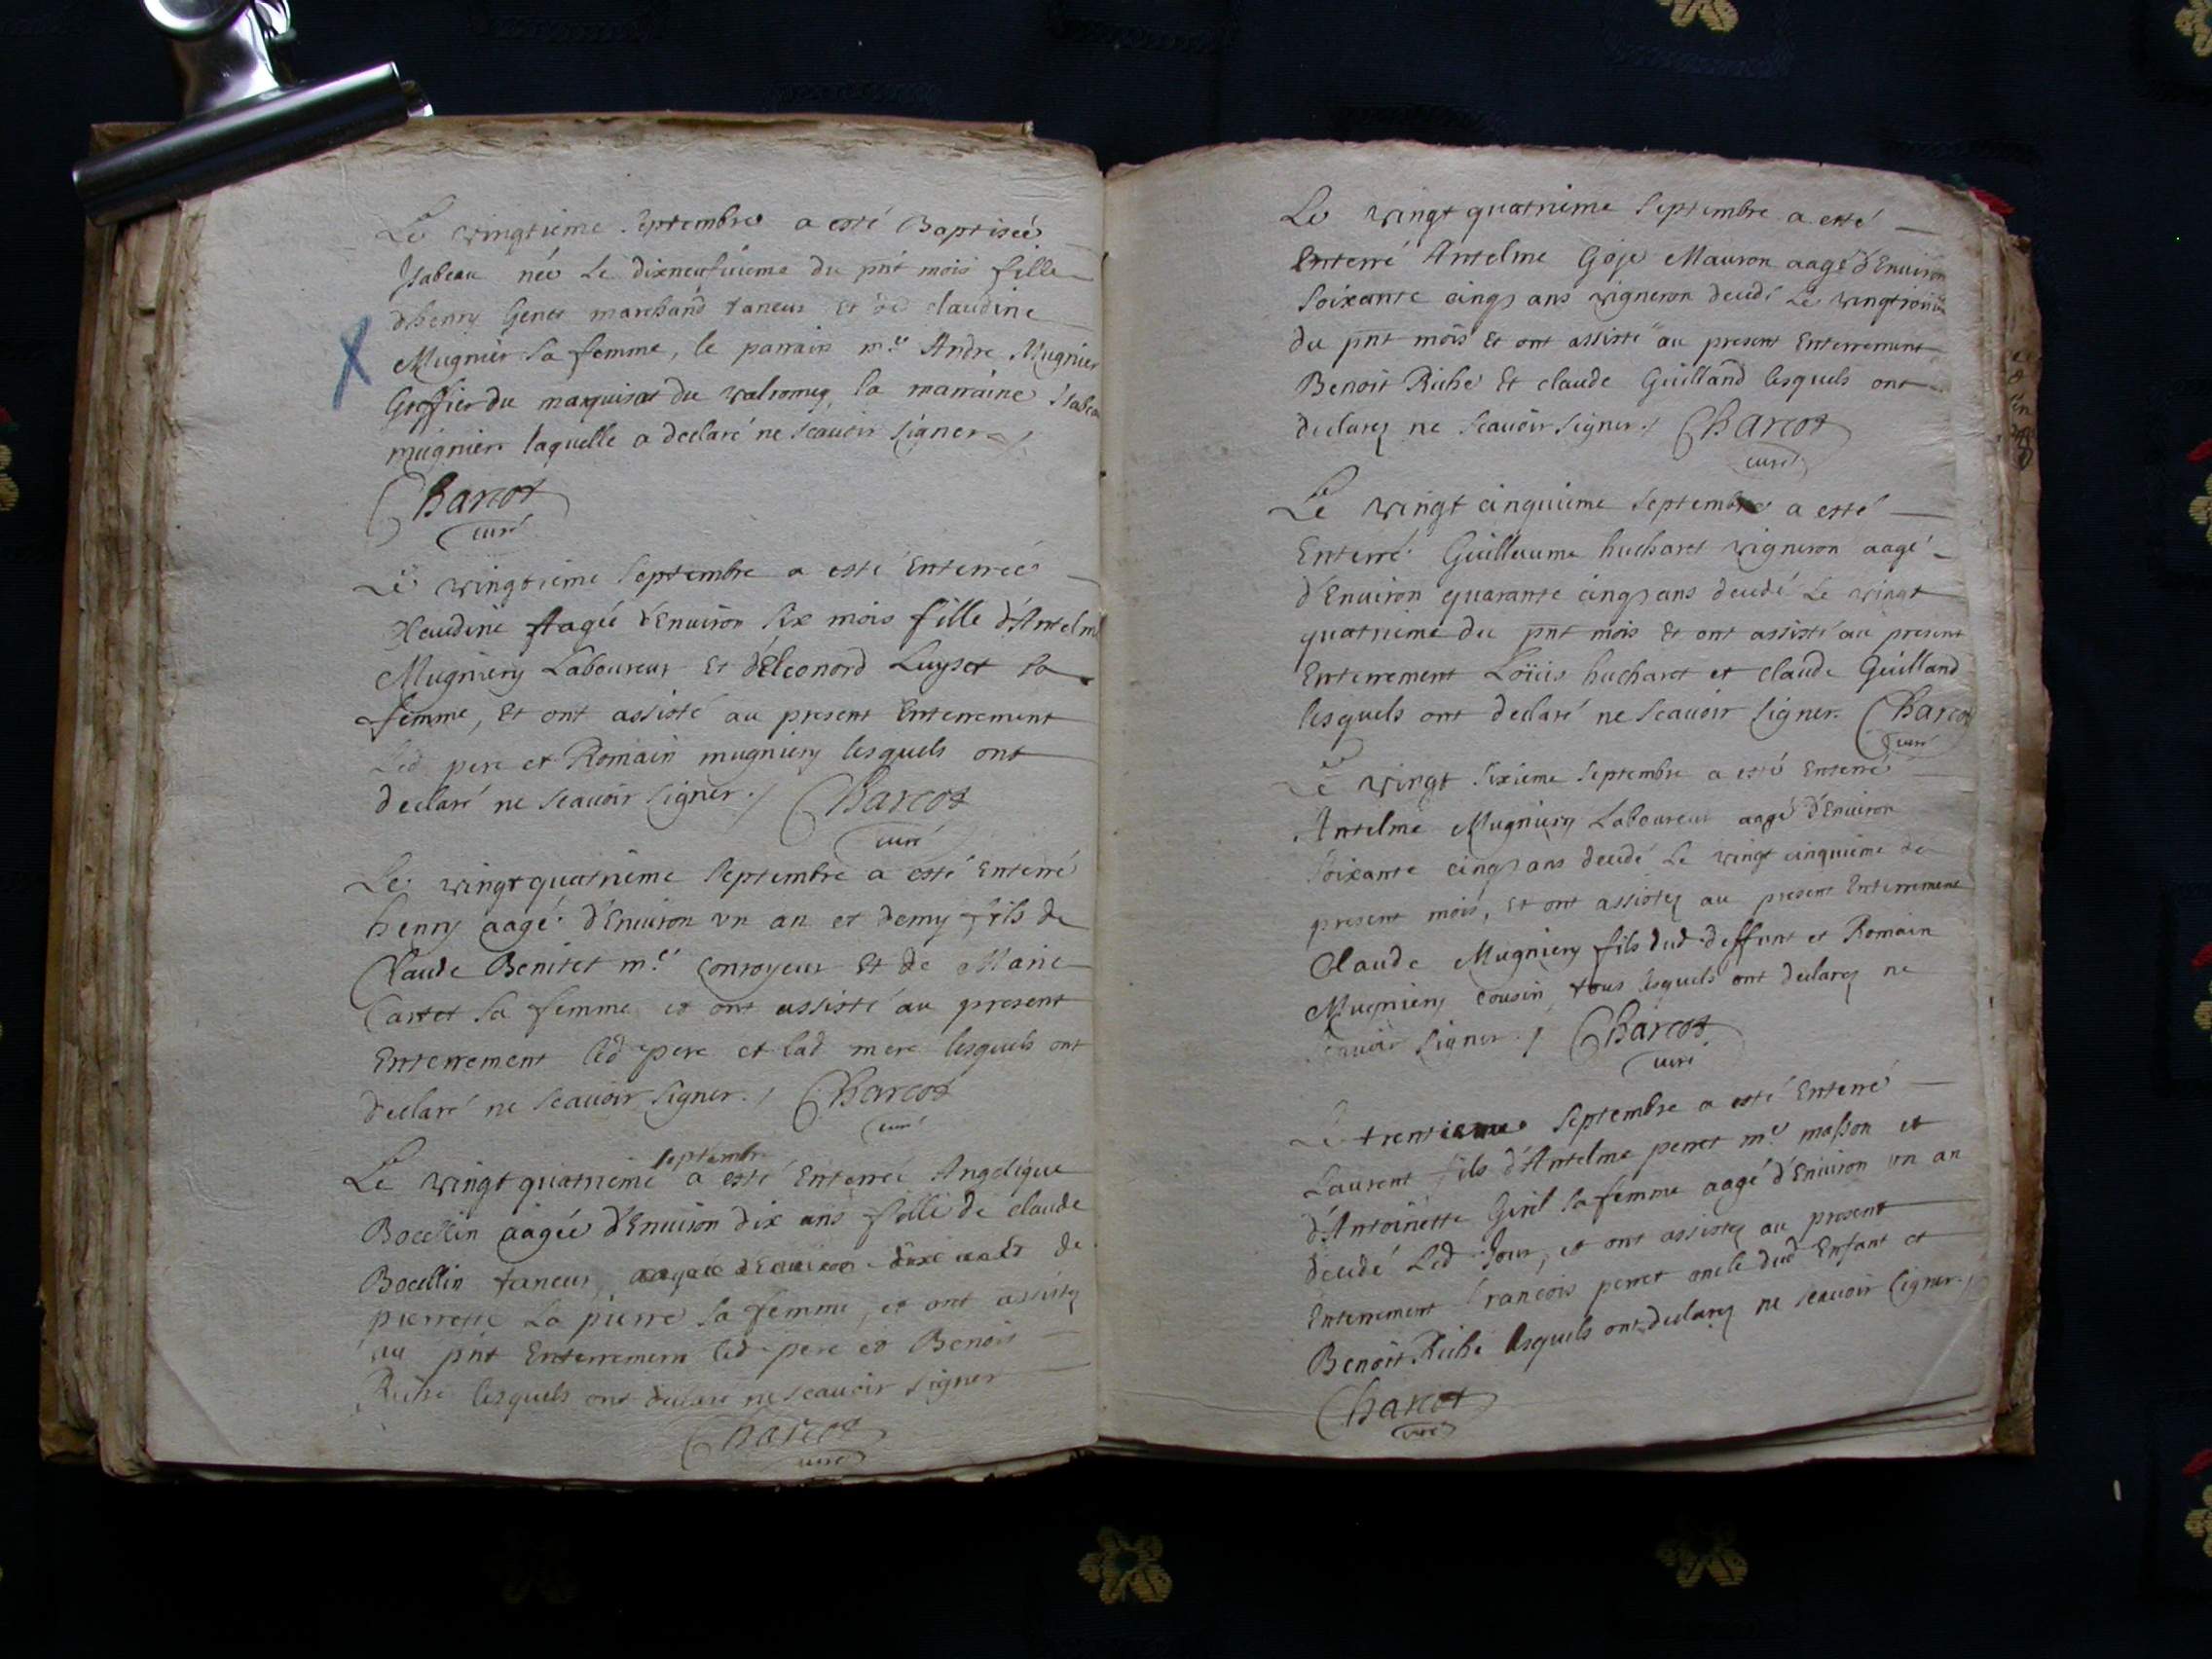 Le vingtieme Septembre a esté Baptisée
Isabeau née Le dixneufuieme du pnt mois fille
d'henry Genet marchand taneur Et de claudine
Mugnier sa femme, le parrain m.e Andre Mugnier
Greffier du marquisat du valromey, la marraine Isabeau
mugnier laquelle a declaré ne scauoir signer
Charcot
curé
Le vingtieme Septembre a esté Enterrée
Claudine Aagée d'Enuiron six mois fille d'Antelme
Mugniery Laboureur Et d'Eleonord Luyset sa
femme, Et ont assisté au present Enterrement
Led pere et Romain mugniery lesquels ont
declaré ne scauoir signer./ Charcot
curé
Le vingtquatrieme Septembre a esté Enterré
henry aagé d'Enuiron vn an et demy fils de
Claude Benitet m.e Conroyeur Et de Marie
Cartet sa femme et ont assisté au present
Enterrement led pere et lad mere lesquels ont
declaré ne scauoir signer./ Charcot
curé
Le vingtquatrieme septembre a esté Enterrée Angelique
Bocellin aagée d'Enuiron dix ans fille de claude
Bocellin taneur, aagée d'Enuiron dix ans de
pierrette La pierre sa femme, et ont assistez
au pnt Enterrement led pere et Benoit
Riche lesquels ont declaré ne scauoir signer
Charcot
curé
Le vingt quatrieme Septembre a esté
Enterré Antelme Goje Mauron aagé d'Enuiron
Soixante cinq ans vigneron decedé Le vingtroisie
du pnt mois Et ont assisté au present Enterrement
Benoit Riche Et claude Guilland lesquels ont
declarez ne scauoir signer./ Charcot
curé
Le vingt cinquieme Septembre a esté
Enterré Guillaume hucharet vigneron aagé
d'Enuiron quarante cinq ans decedé Le vingt
quatrieme du pnt mois Et ont assisté au present
Enterrement Loüis hucharet et claude Guilland
lesquels ont declaré ne scauoir signer. Charcot
curé
Le vingt sixieme Septembre a esté Enterré
Antelme Mugniery Laboureur aagé d'Enuiron
Soixante cinq ans decedé Le vingt cinquieme du
present mois, Et ont assistez au present Enterrement
Claude Mugniery fils dud deffunt et Romain
Mugniery cousin, tous lesquels ont declarez ne
scauoir signer./ Charcot
curé
Le trentieme Septembre a esté Enterré
Laurent fils d'Antelme perret m.e masson et
d'Antoinette Giril sa femme aagé d'Enuiron vn an
decedé Led Jour, et ont assistez au present
Enterrement francois perret oncle dud Enfant et
Benoit Riche lesquels ont declarez ne scauoir signer./
Charcot
curé